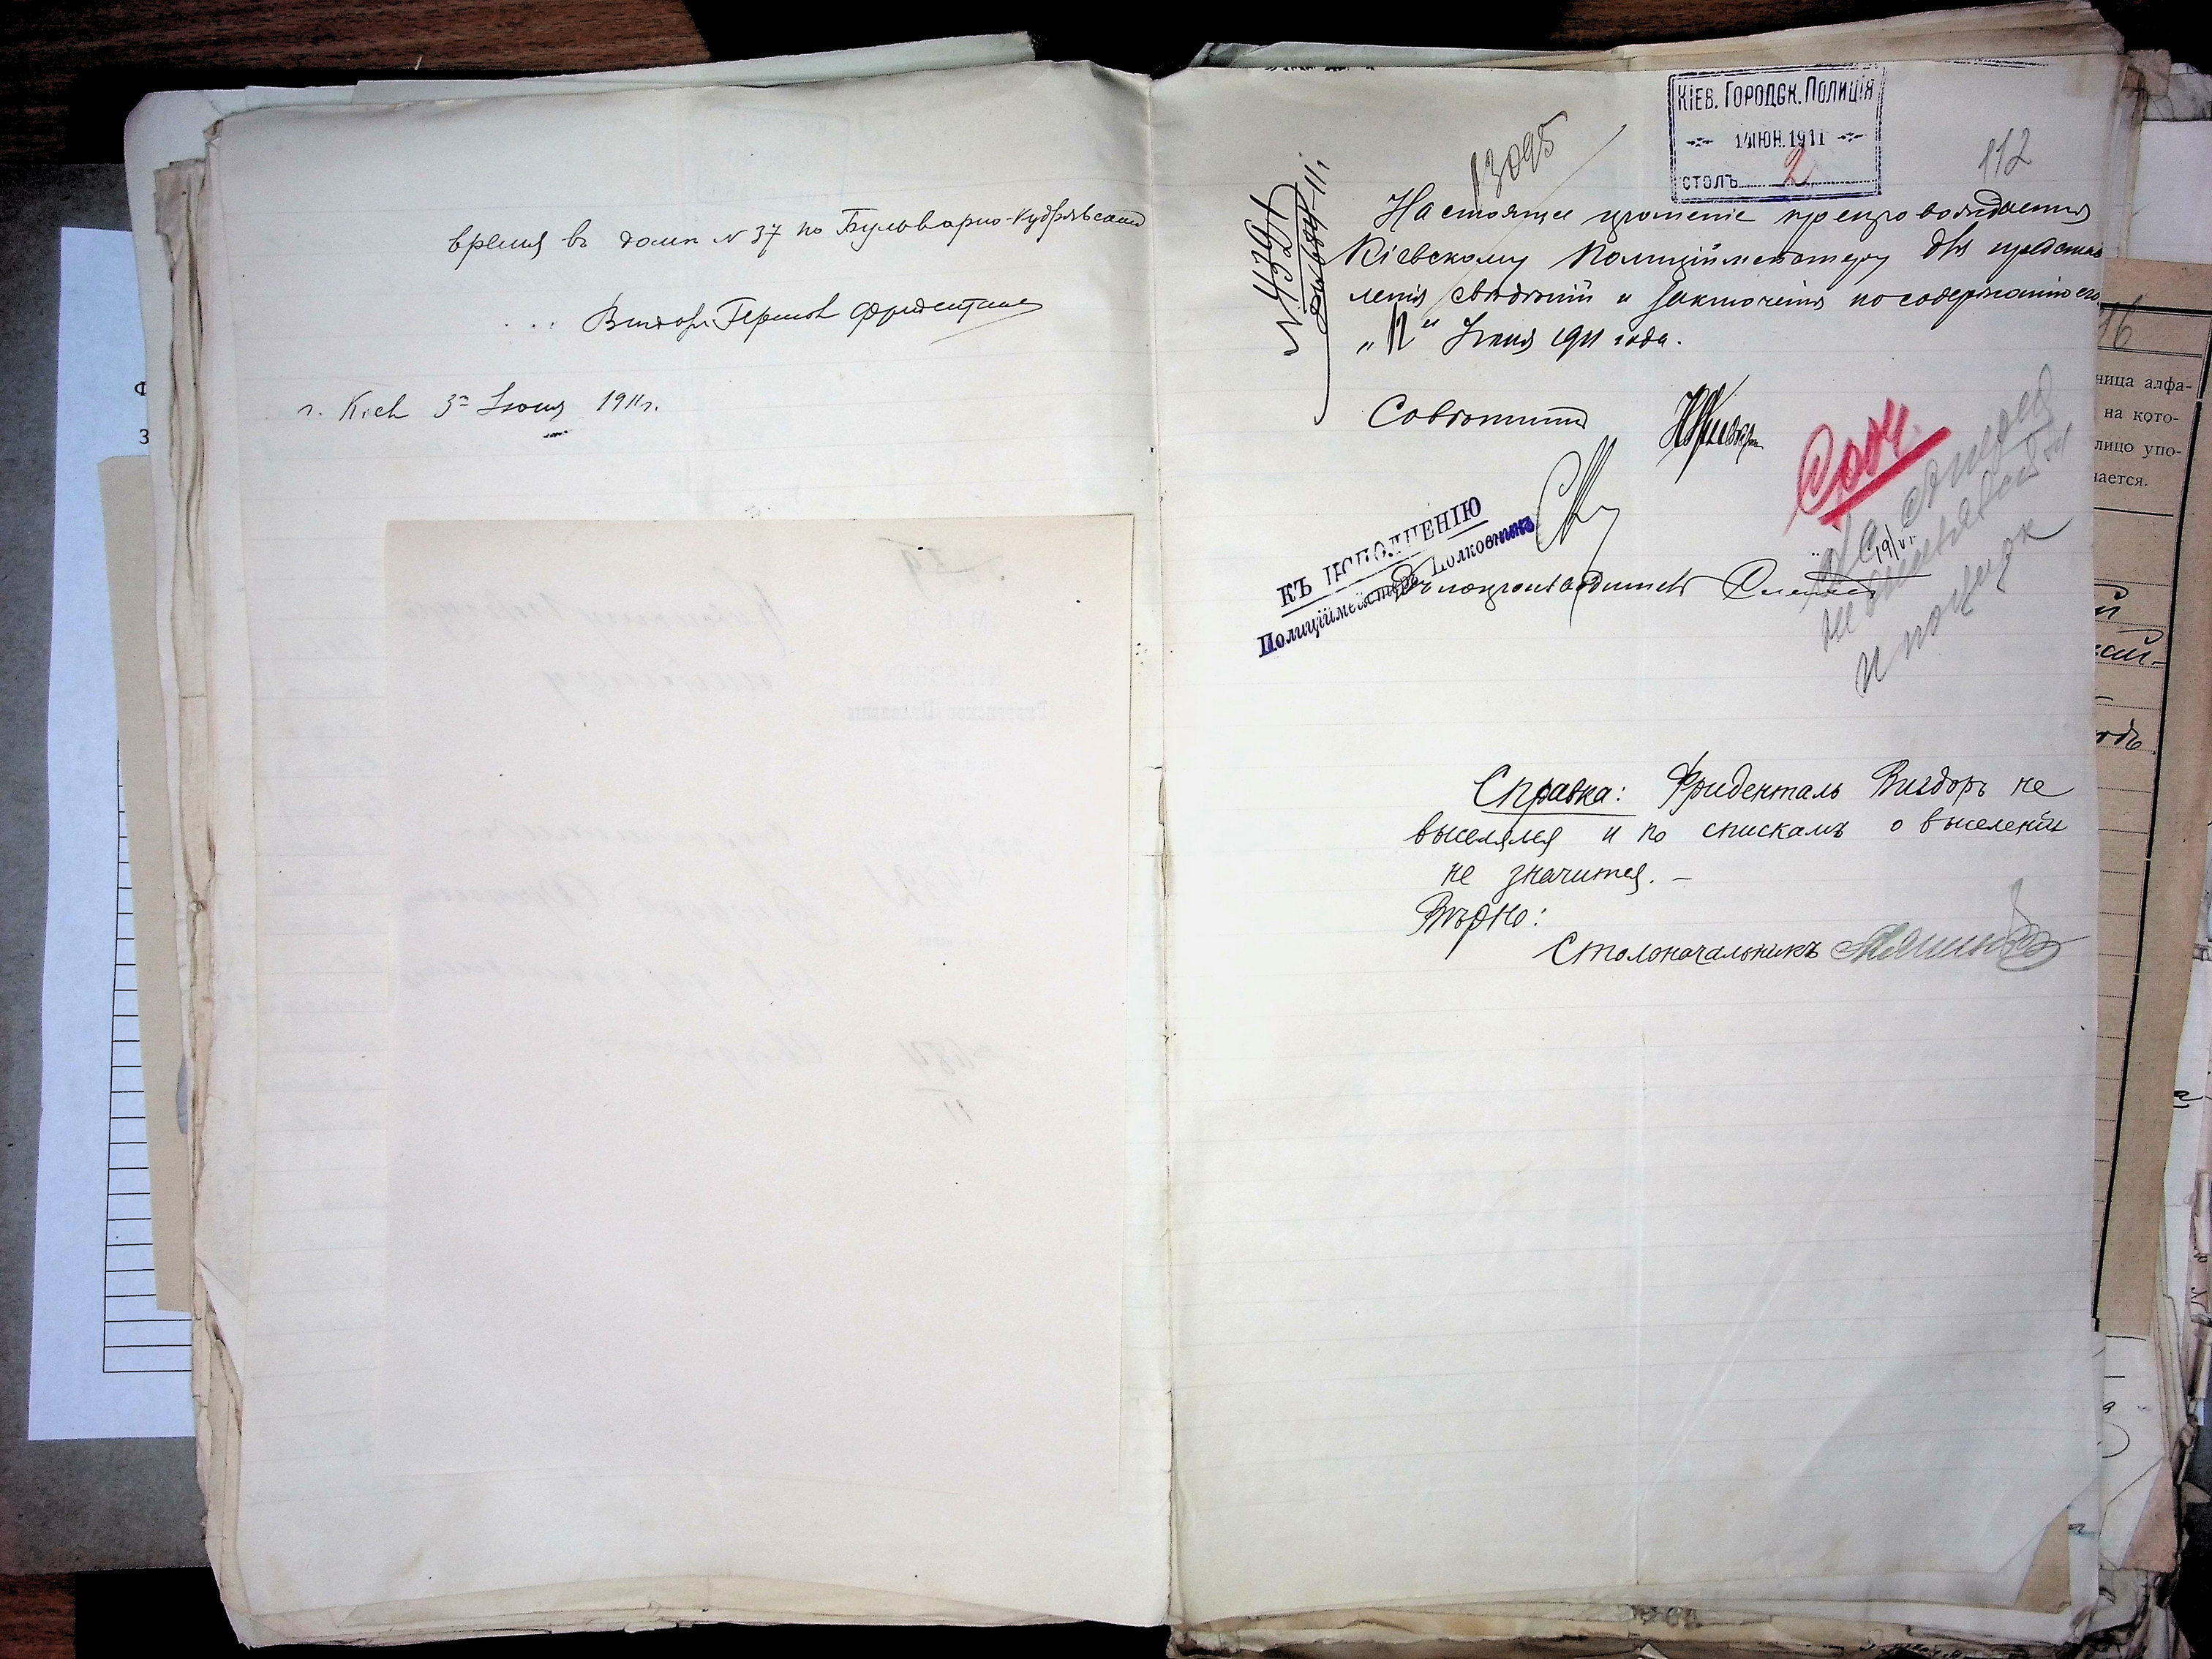 время въ домѣ № 37 по Бульварно-Кудрявской
Вигдоръ Гершов Фриденталь
г. Кіев 3го Іюня 1911 г.
КІЕВ. ГОРОДСК. ПОЛИЦІЯ
14 ІЮН. 1911
СТОЛЪ 2
112
13095
№ 43291
Настоящее прошеніе препровождается
Кіевскому Полиціймейстеру для представ
ленія свѣдѣній и заключенія по содержанію его
„12" Іюня 1911 года.
Совѣтникъ
Сроч.
КЪ ИСПОЛНЕНІЮ
Полиціймейстеръ Полковникъ
19/VI
Дѣлопроизводитель
Справка: Фриденталь Вигдоръ не
выселялся и по спискамъ о выселеніи
не значится. –
Вѣрно:
Столоначальникъ
16
ница алфа-
на кото-
лицо упо-
нается.